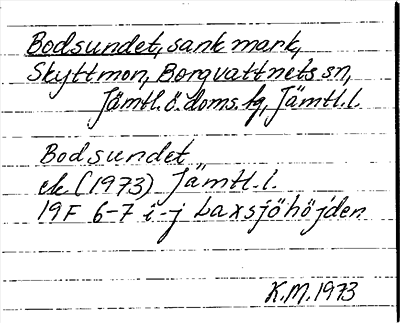 Bodsundet, sank mark,
Skyttmon, Borgvattnets sn,
Jämtl.ö.doms.tg, Jämtl.l.
Bodsundet
ek (1973) Jämtl.l.
19F 6-7 i-j Laxsjöhöjden
K.M.1973